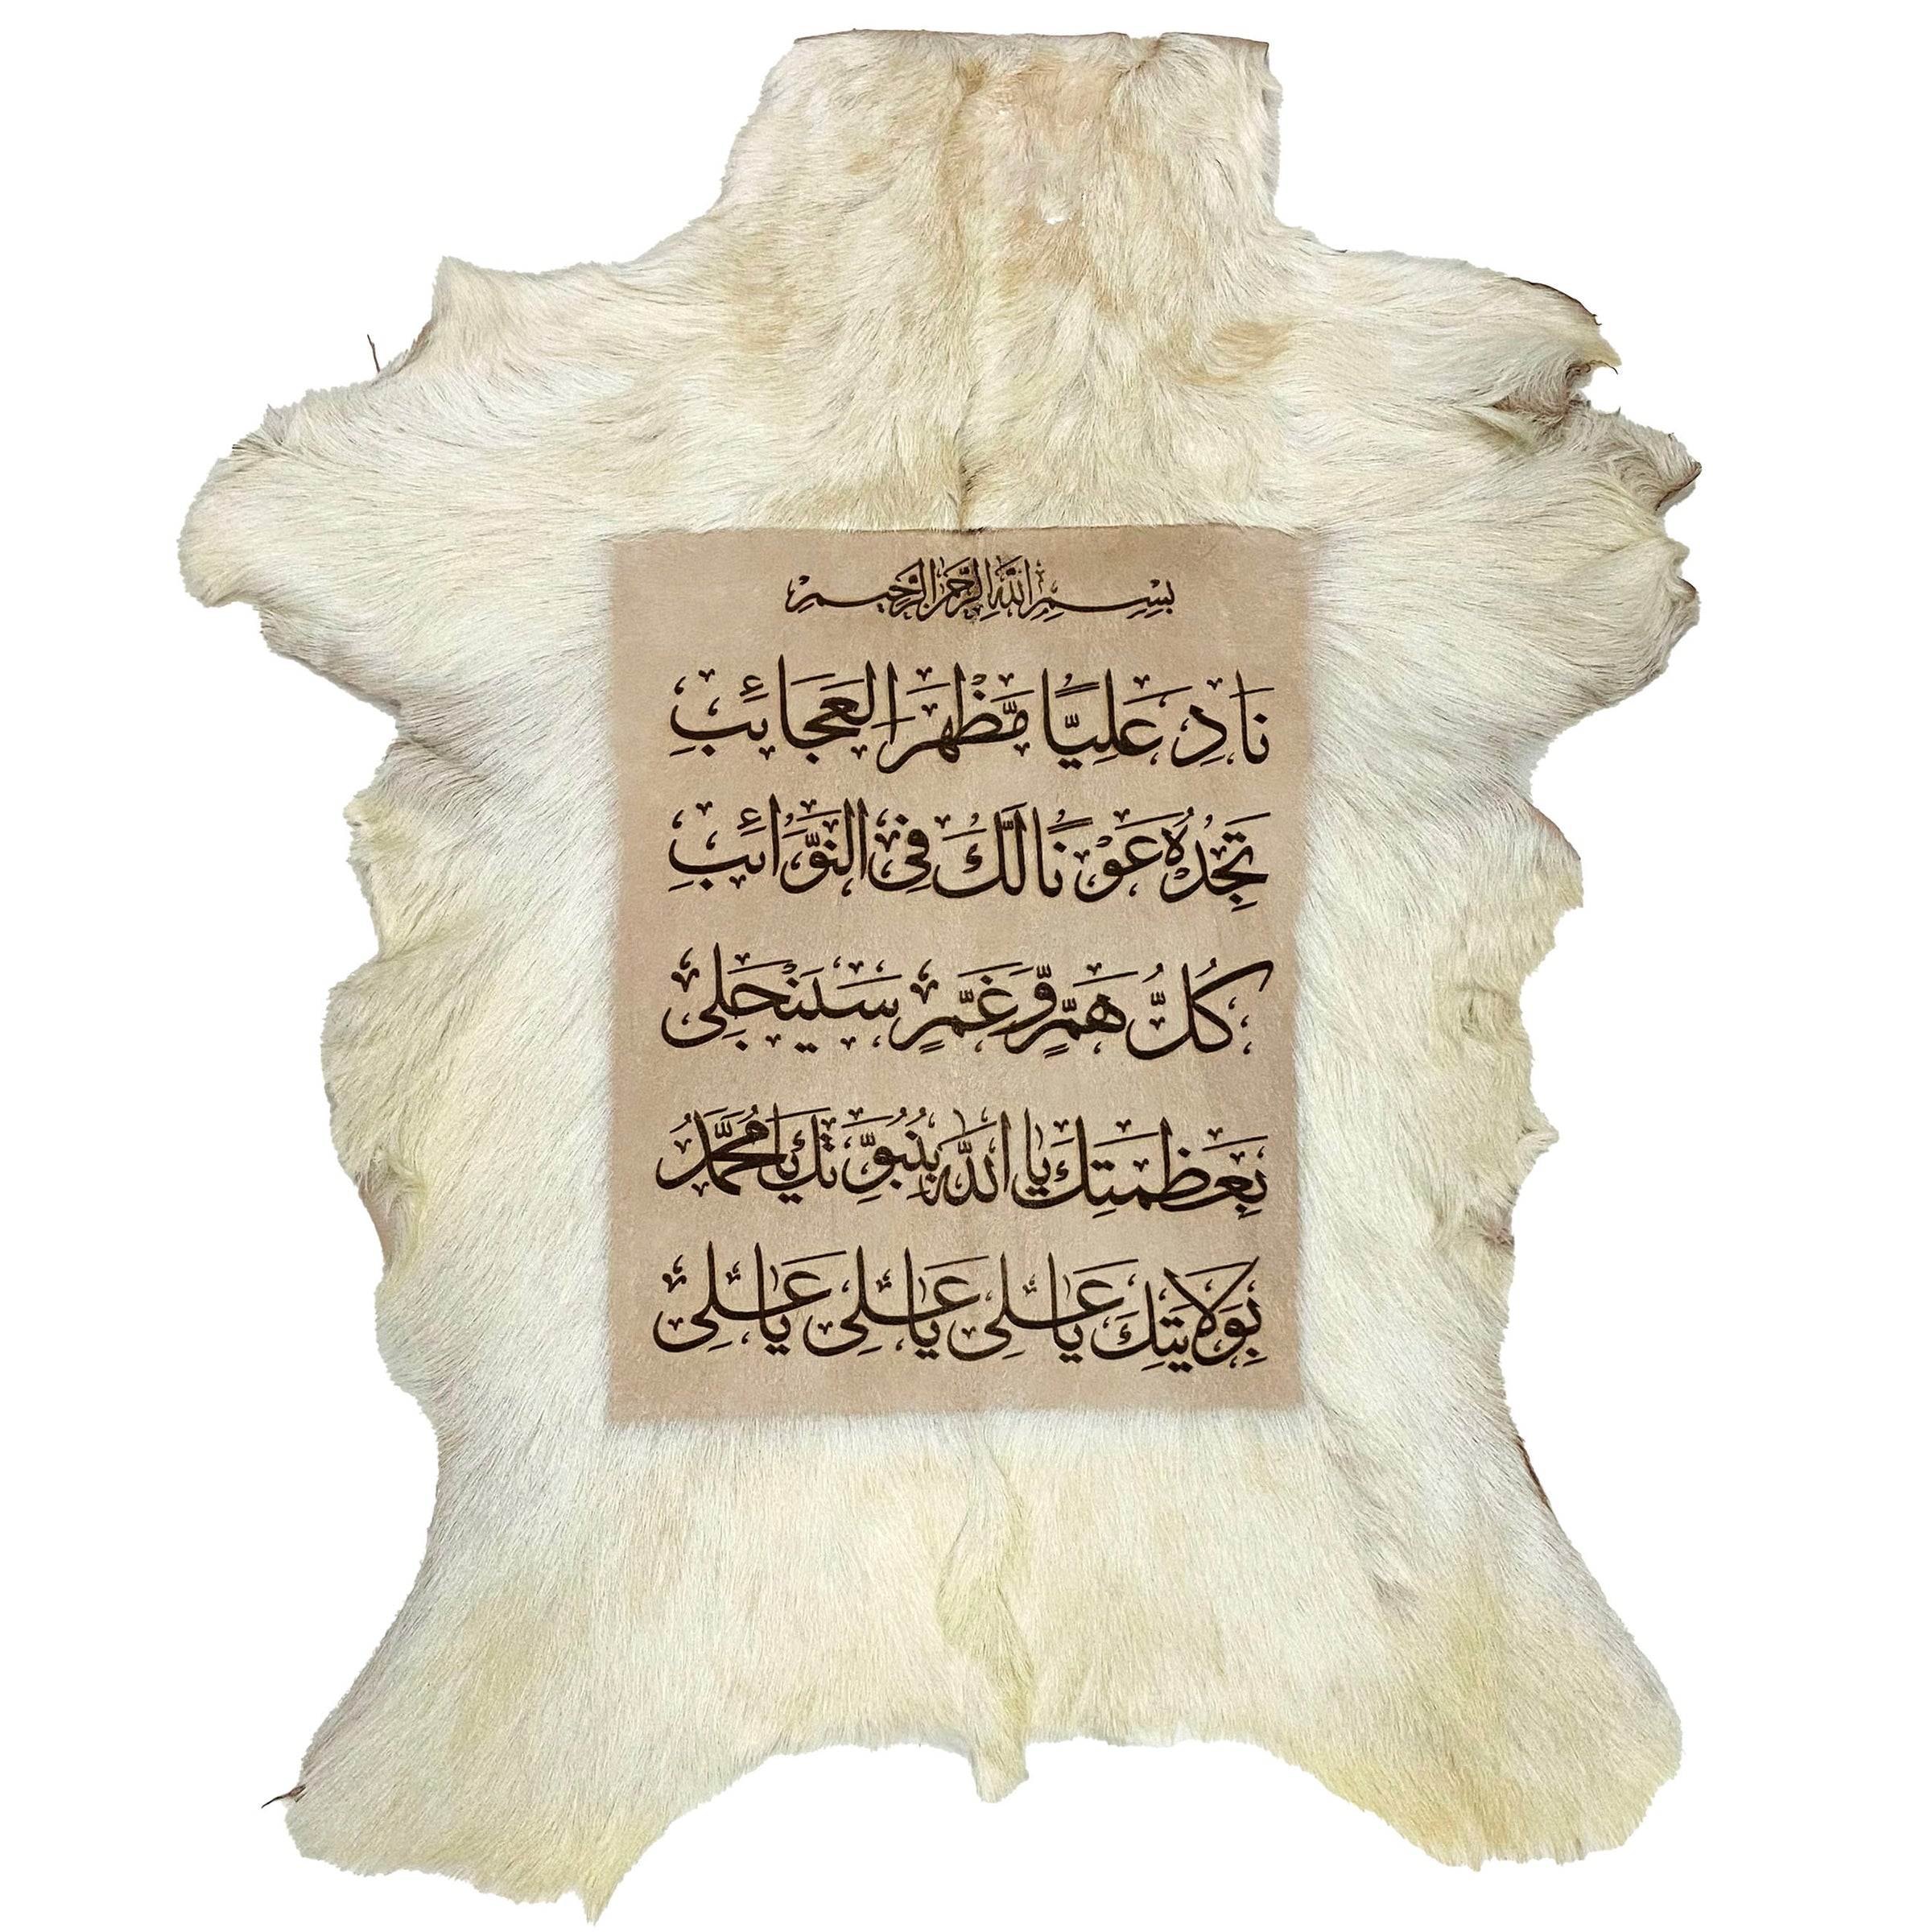 بِسْمِ اللَّهِ الرَّحْمَنِ الرَّحِيمِ
نَادِ عَلِيًّا مَّظْهَرَ الْعَجَائِبِ
تَجِدْهُ عَوْنًا لَّكَ فِي النَّوَائِبِ
كُلُّ هَمٍّ وَّغَمٍّ سَيَنْجَلِي
بِعَظَمَتِكَ يَا اللَّهُ بِنُبُوَّتِكَ يَا مُحَمَّدُ
بِوَلَايَتِكَ يَا عَلِيُّ يَا عَلِيُّ يَا عَلِيُّ